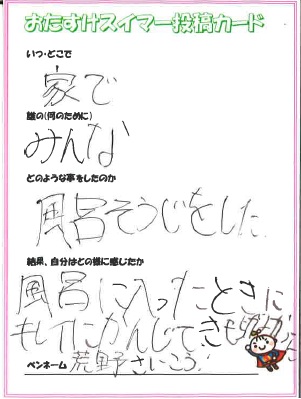 おたすけスイマー投稿カード
いつ・どこで
家で
誰の(何のために)
みんな
どのような事をしたのか
風呂そうじをした
結果、自分はどの様に感じたか
風呂に入ったときに
キレイにかんじてきもちがった
ペンネーム 荒野さいこう!